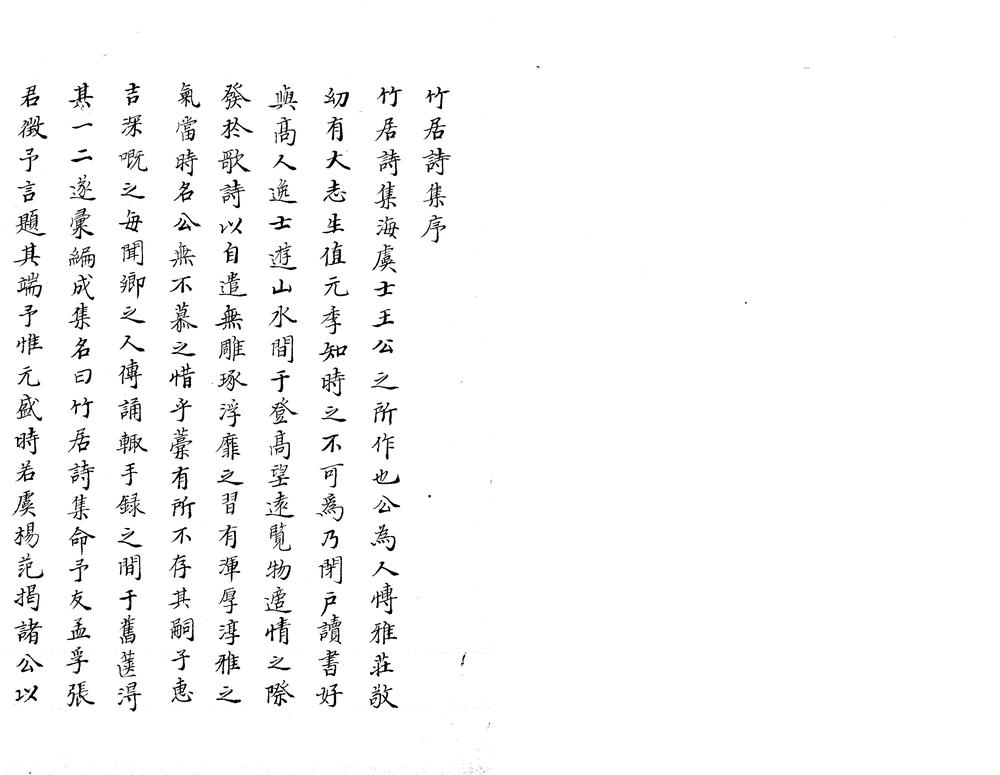 竹居詩集序
竹居詩集海虞士王公之所作也公為人慱雅莊敬
幼有大志生值元季知時之不可爲乃閉戸讀書好
與髙人逸士遊山水間于登髙望逺覧物適情之際
發於歌詩以自遣無雕琢浮靡之習有渾厚淳雅之
氣當時名公無不慕之惜乎藁有所不存其嗣子惠
吉深嘅之毎聞鄉之人傳誦輙手録之間于舊篋淂
其一二遂彙編成集名曰竹居詩集命予友孟孚張
君徴予言題其端予惟元盛時若虞楊范掲諸公以